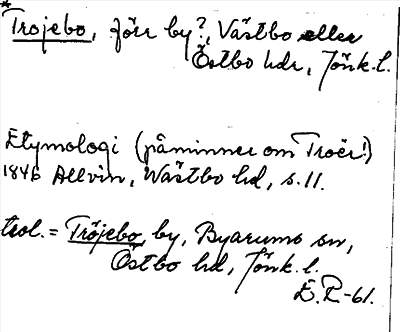 * Trojebo, förr by?, Västbo eller
Östbo hdr, Jönk.l.
Etymologi (påminner om Troër!)
1846 Allvin, Wästbo hd, s.11.
trol. = Tröjebo by, Byarums sn,
Östbo hd, Jönk.l.
E.R-61.